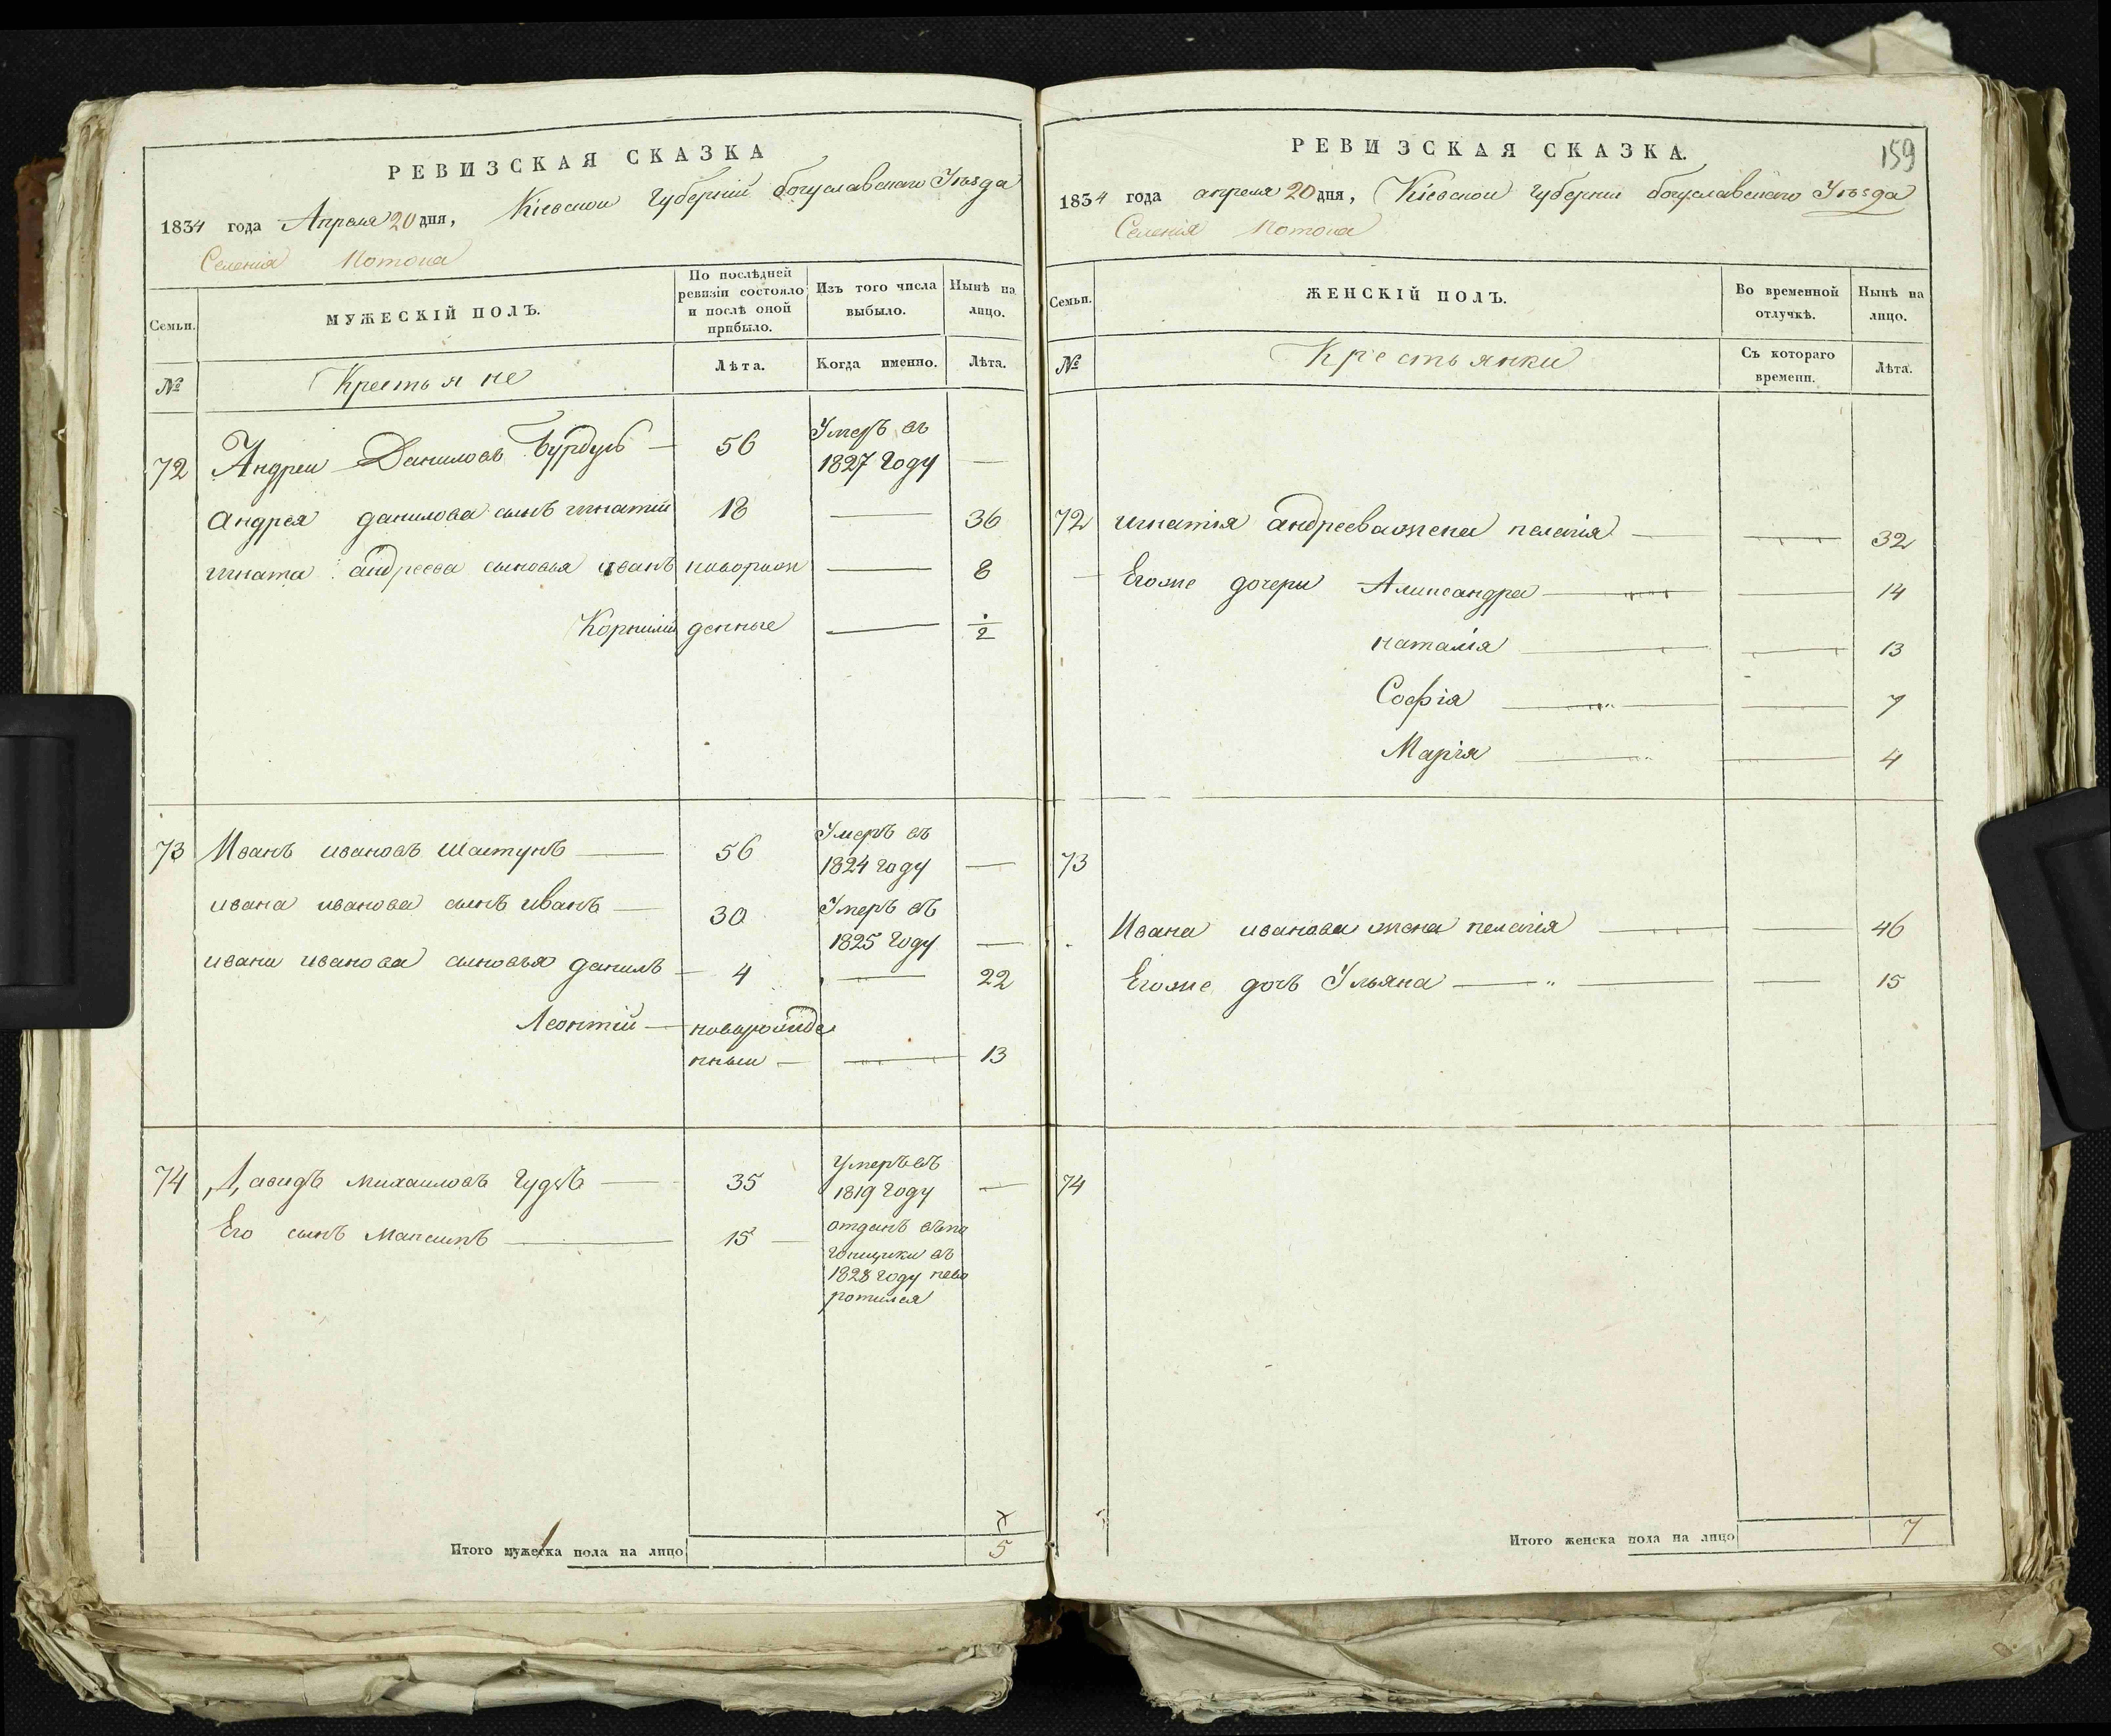 РЕВИЗСКАЯ СКАЗКА
1834 года Апреля 20 дня, Кіевской Губерніи богуславскаго Уѣзда
Селенія Потока
Семьи.
МУЖЕСКІЙ ПОЛЪ.
По послѣдней ревизіи состояло и послѣ оной прибыло.
Изъ того числа выбыло.
Нынѣ на лицо.
№
Крестьяне
Лѣта.
Когда именно.
Лѣта.
72 Андреи Даниловъ 56 Умеръ въ 1827 году —
андрея данилова сынъ игнатій 18 — 36
игната андреева сыновья иванъ новорож — 8
Корнилій денные — 1/2
73 Иванъ ивановъ Шастунъ — 56 Умеръ въ 1824 году —
ивана иванова сынъ иванъ — 30 Умеръ въ 1825 году —
ивана иванова сыновья данилъ — 4 — 22
Леонтій — новорожде
нныи — — 13
74 Давидъ михаиловъ — 35 умеръ въ 1819 году —
Его сынъ Максимъ — 15 — отданъ въ по
гонщики въ
1828 году нево
ротился
Итого мужеска пола на лицо 5
РЕВИЗСКАЯ СКАЗКА.
159
1834 года апреля 20 дня, Кіевской губерніи богуславскаго Уѣзда
Селенія Потока
Семьи.
ЖЕНСКІЙ ПОЛЪ.
Во временной отлучкѣ.
Нынѣ на лицо.
№
Крестьянки
Съ котораго времени.
Лѣта.
72 игнатія андреева жена пелагія — — 32
Егоже дочери Александра — — 14
наталія — — 13
Софія — — 7
Марія — — 4
73
Ивана иванова жена пелагія — — 46
Егоже дочь Ульяна — — 15
74
Итого женска пола на лицо 7